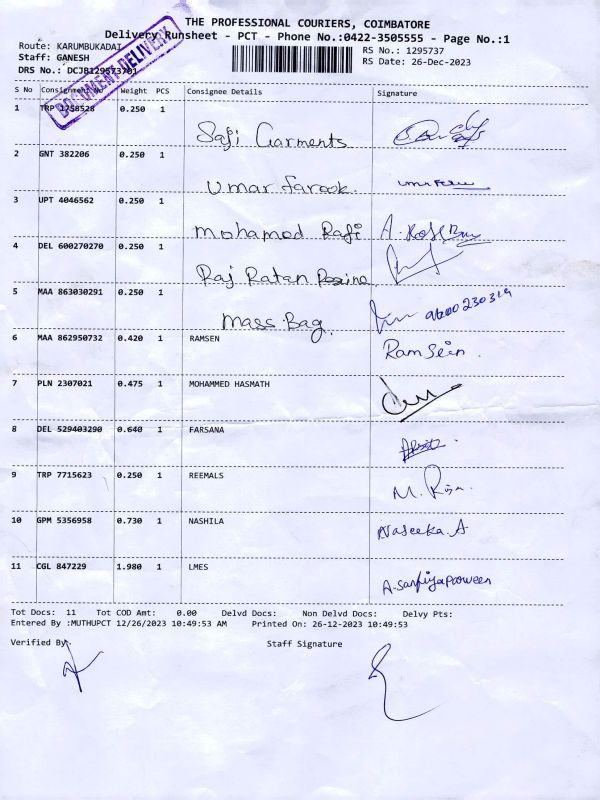 THE PROFESSIONAL COURIERS, COIMBATORE
Delivery Runsheet - PCT - Phone No.:0422-3505555 - Page No.:1
Route: KARUMBUKADAI
RS No.: 1295737
Staff: GANESH
RS Date: 26-Dec-2023
DRS No.: DCJB129573701
DOCUMENT DELIVERY
S No Consignment No Weight PCS Consignee Details Signature
1 TRP 1758528 0.250 1 Safi Garments
2 GNT 382206 0.250 1 Umar farook. umar
3 UPT 4046562 0.250 1 Mohamed Rafi A.
4 DEL 600270270 0.250 1 Raj Ratan
5 MAA 863030291 0.250 1 Mass Bag. 9600230319
6 MAA 862950732 0.420 1 RAMSEN Ramsein.
7 PLN 2307021 0.475 1 MOHAMMED HASMATH
8 DEL 529403290 0.640 1 FARSANA
9 TRP 7715623 0.250 1 REEMALS M.
10 GPM 5356958 0.730 1 NASHILA Naseeka.A
11 CGL 847229 1.980 1 LMES
Tot Docs: 11 Tot COD Amt: 0.00 Delvd Docs: Non Delvd Docs: Delvy Pts:
Entered By :MUTHUPCT 12/26/2023 10:49:53 AM Printed On: 26-12-2023 10:49:53
Verified By Staff Signature